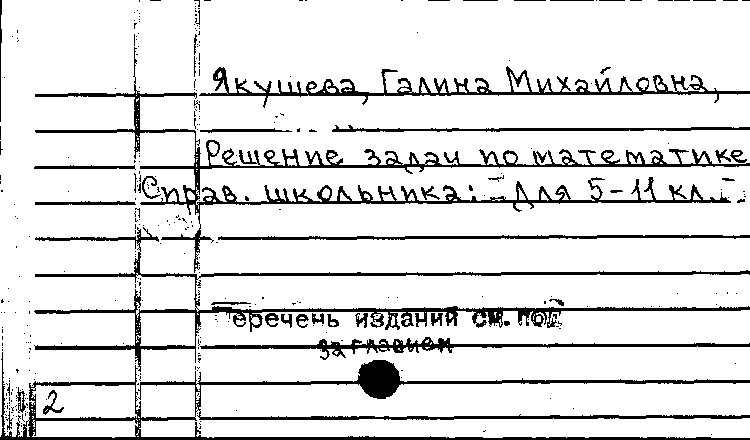 Якушева, Галина Михайловна,
Решение задач по математике
Справ. школьника: Для 5-11 кл.
Перечень изданий см. под
заглавием
2